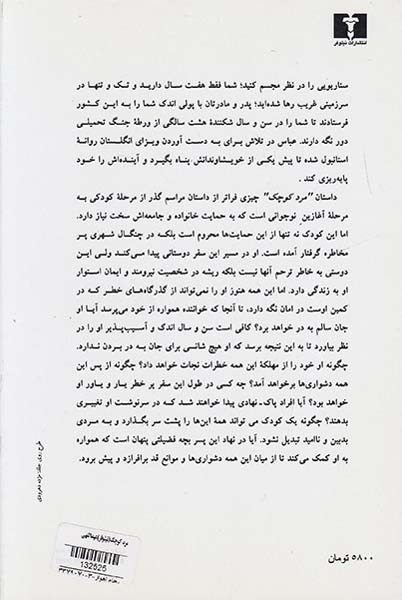 انتشارات نیلوفر
سناریویی را در نظر مجسم کنید؛ شما فقط هفت سال دارید و تک و تنها در
سرزمینی غریب رها شده‌اید؛ پدر و مادرتان با پولی اندک شما را به این کشور
فرستادند تا شما را در سن و سال شکنندهٔ هشت سالگی از ورطهٔ جنگ تحمیلی
دور نگه دارند. عباس در تلاش برای به دست آوردن ویزای انگلستان روانهٔ
استانبول شده تا پیش یکی از خویشاوندانش پناه بگیرد و آینده‌اش را خود
پایه‌ریزی کند.
داستان "مرد کوچک" چیزی فراتر از داستان مراسم گذر از مرحلهٔ کودکی به
مرحلهٔ آغازین نوجوانی است که به حمایت خانواده و جامعه‌اش سخت نیاز دارد.
اما این کودک نه تنها از این حمایت‌ها محروم است بلکه در چنگال شهری پر
مخاطره گرفتار آمده است. او در مسیر این سفر دوستانی پیدا می‌کند ولی این
دوستی به خاطر ترحم آنها نیست بلکه ریشه در شخصیت نیرومند و ایمان استوار
او به زندگی دارد. اما این همه هنوز او را نمی‌تواند از گذرگاه‌های خطر که در
کمین اوست در امان نگه دارد، تا آنجا که خواننده همواره از خود می‌پرسد آیا او
جان سالم به در خواهد برد؟ کافی است سن و سال اندک و آسیب‌پذیر او را در
نظر بیاورد تا به این نتیجه برسد که او هیچ شانسی برای جان به در بردن ندارد.
چگونه او خود را از مهلکهٔ این همه خطرات نجات خواهد داد؟ چگونه از پس این
همه دشواری‌ها برخواهد آمد؟ چه کسی در طول این سفر پر خطر یار و یاور او
خواهد بود؟ آیا افراد پاک‌-نهادی پیدا خواهند شد که در سرنوشت او تغییری
بدهند؟ چگونه یک کودک می تواند همهٔ این‌ها را پشت سر بگذارد و به مردی
بدبین و ناامید تبدیل نشود. آیا در نهاد این پسر بچه فضیلتی پنهان است که همواره
به او کمک می‌کند تا از میان این همه دشواری‌ها و موانع قد برافرازد و پیش برود.
طرح روی جلد:
132525
۵۸۰۰ تومان